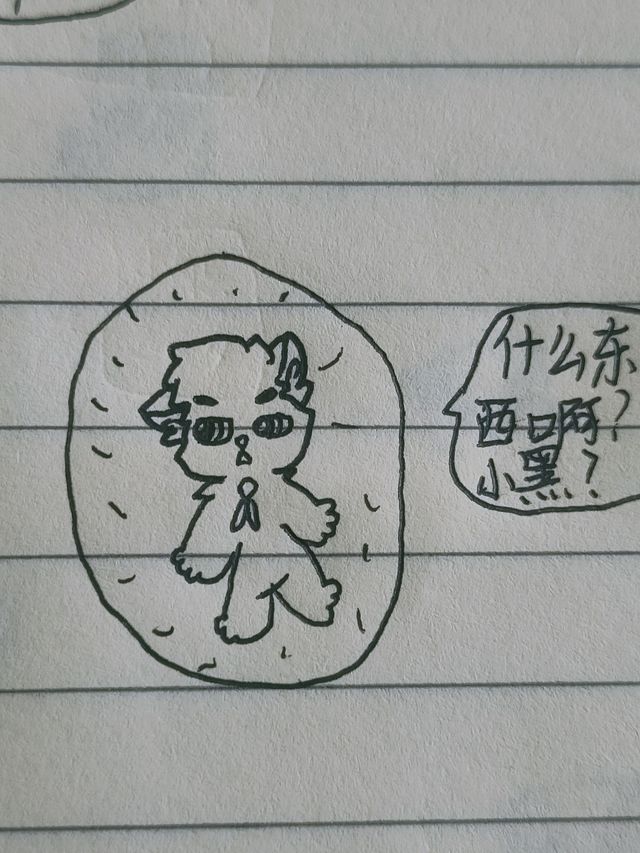 什么东
西啊？
小黑？